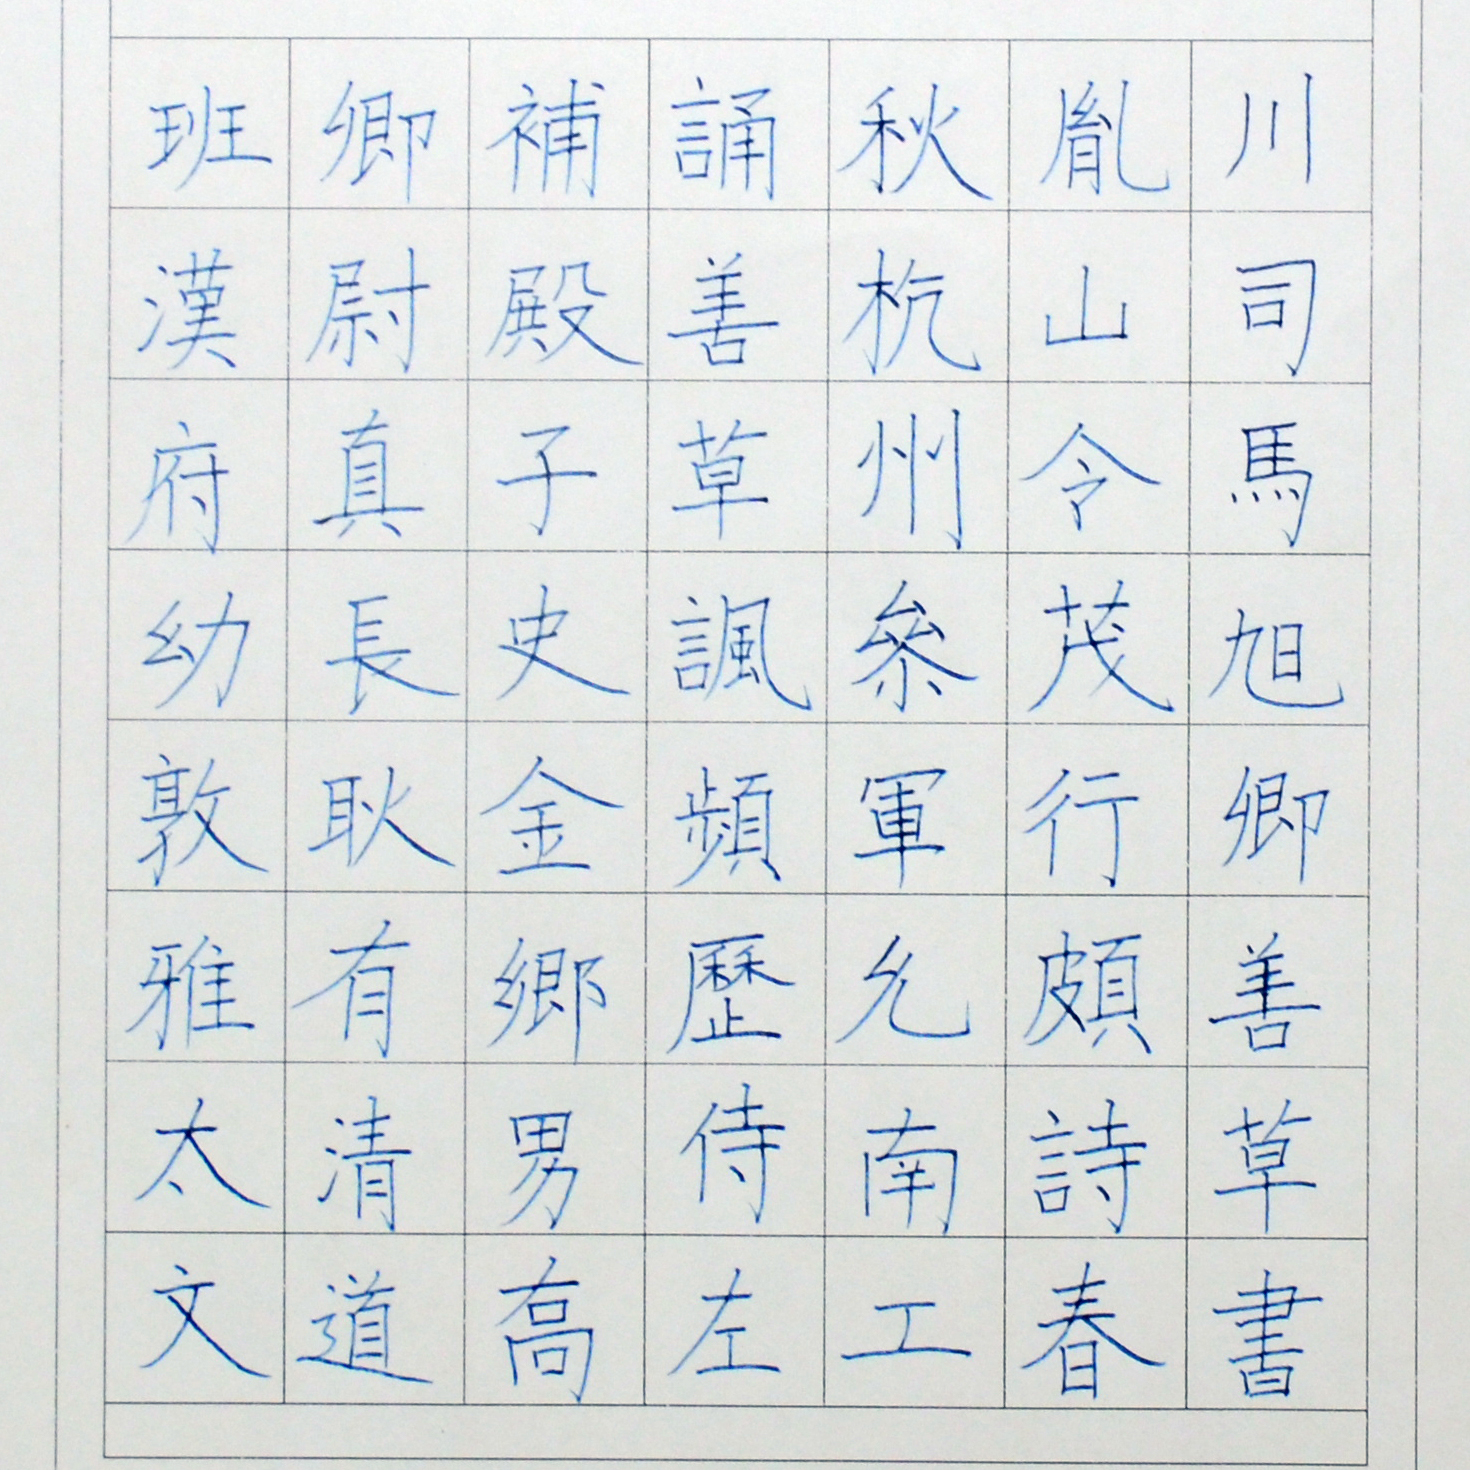 川司馬旭卿善草書
胤山令茂行頗詩春
秋杭州參軍允南工
誦善草諷頻歷侍左
補殿子史金鄉男高
卿尉真長耿有清道
班漢府幼敦雅太文